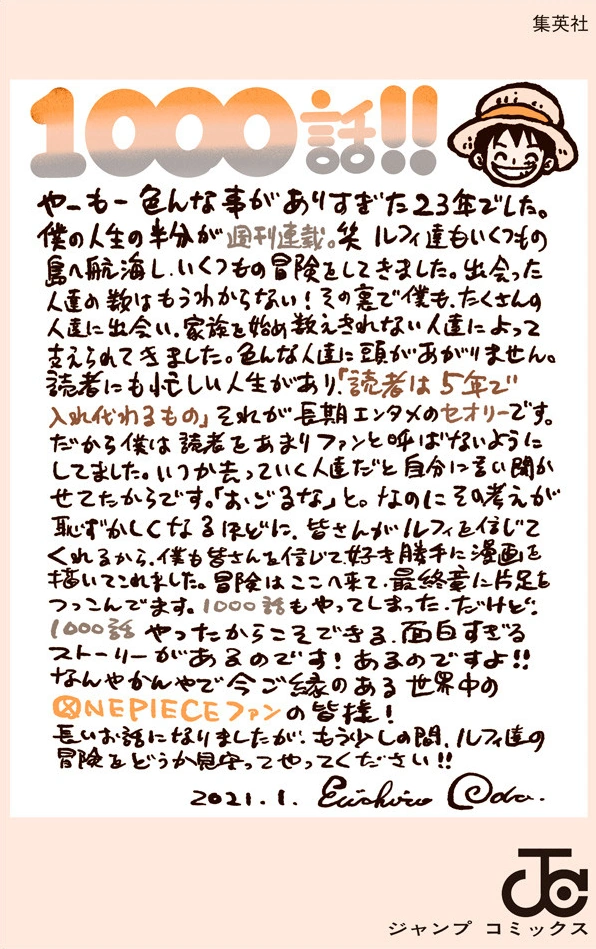 集英社
1000話!!
やーもー色んな事がありすぎた23年でした。
僕の人生の半分が週刊連載。笑 ルフィ達もいくつもの
島へ航海し、いくつもの冒険をしてきました。出会った
人達の数はもうわからない！その裏で僕も、たくさんの
人達に出会い、家族を始め数えきれない人達によって
支えられてきました。色んな人達に頭があがりません。
読者にも忙しい人生があり、「読者は5年で
入れ代わるもの」それが長期エンタメのセオリーです。
だから僕は読者をあまりファンと呼ばないように
してました。いつか去っていく人達だと自分に言い聞か
せてたからです。「おごるな」と。なのにその考えが
恥ずかしくなるほどに、皆さんがルフィを信じて
くれるから、僕も皆さんを信じて、好き勝手に漫画を
描いてこれました。冒険はここへ来て、最終章に片足を
つっこんでます。1000話もやってしまった、だけど:
1000話 やったからこそできる、面白すぎる
ストーリーがあるのです！あるのですよ!!
なんやかんやで今ご縁のある世界中の
ONEPIECEファンの皆様！
長いお話になりましたが、もう少しの間、ルフィ達の
冒険をどうか見守ってやってください!!
2021.1. Eiichiro Oda.
JC
ジャンプ コミックス